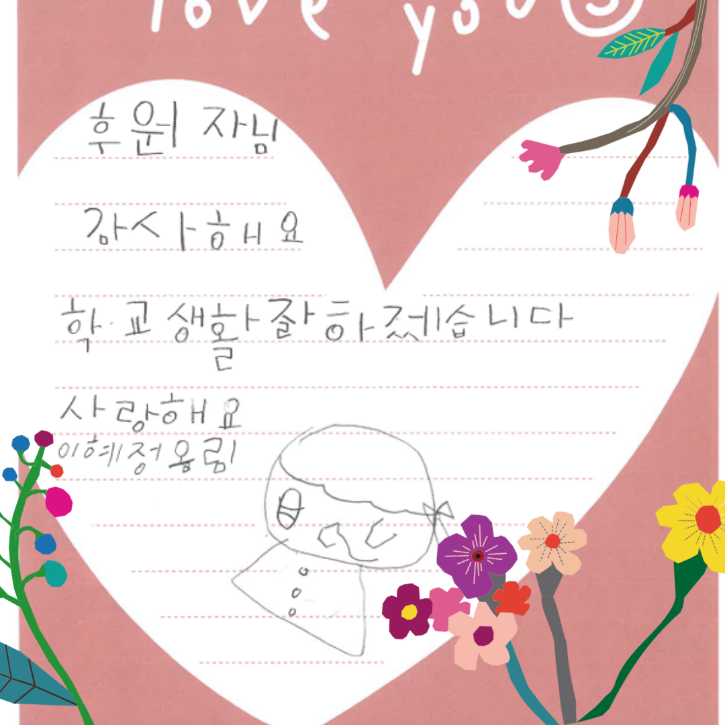 love you
후원자님
감사해요
학교생활잘하겠습니다
사랑해요
이혜정올림